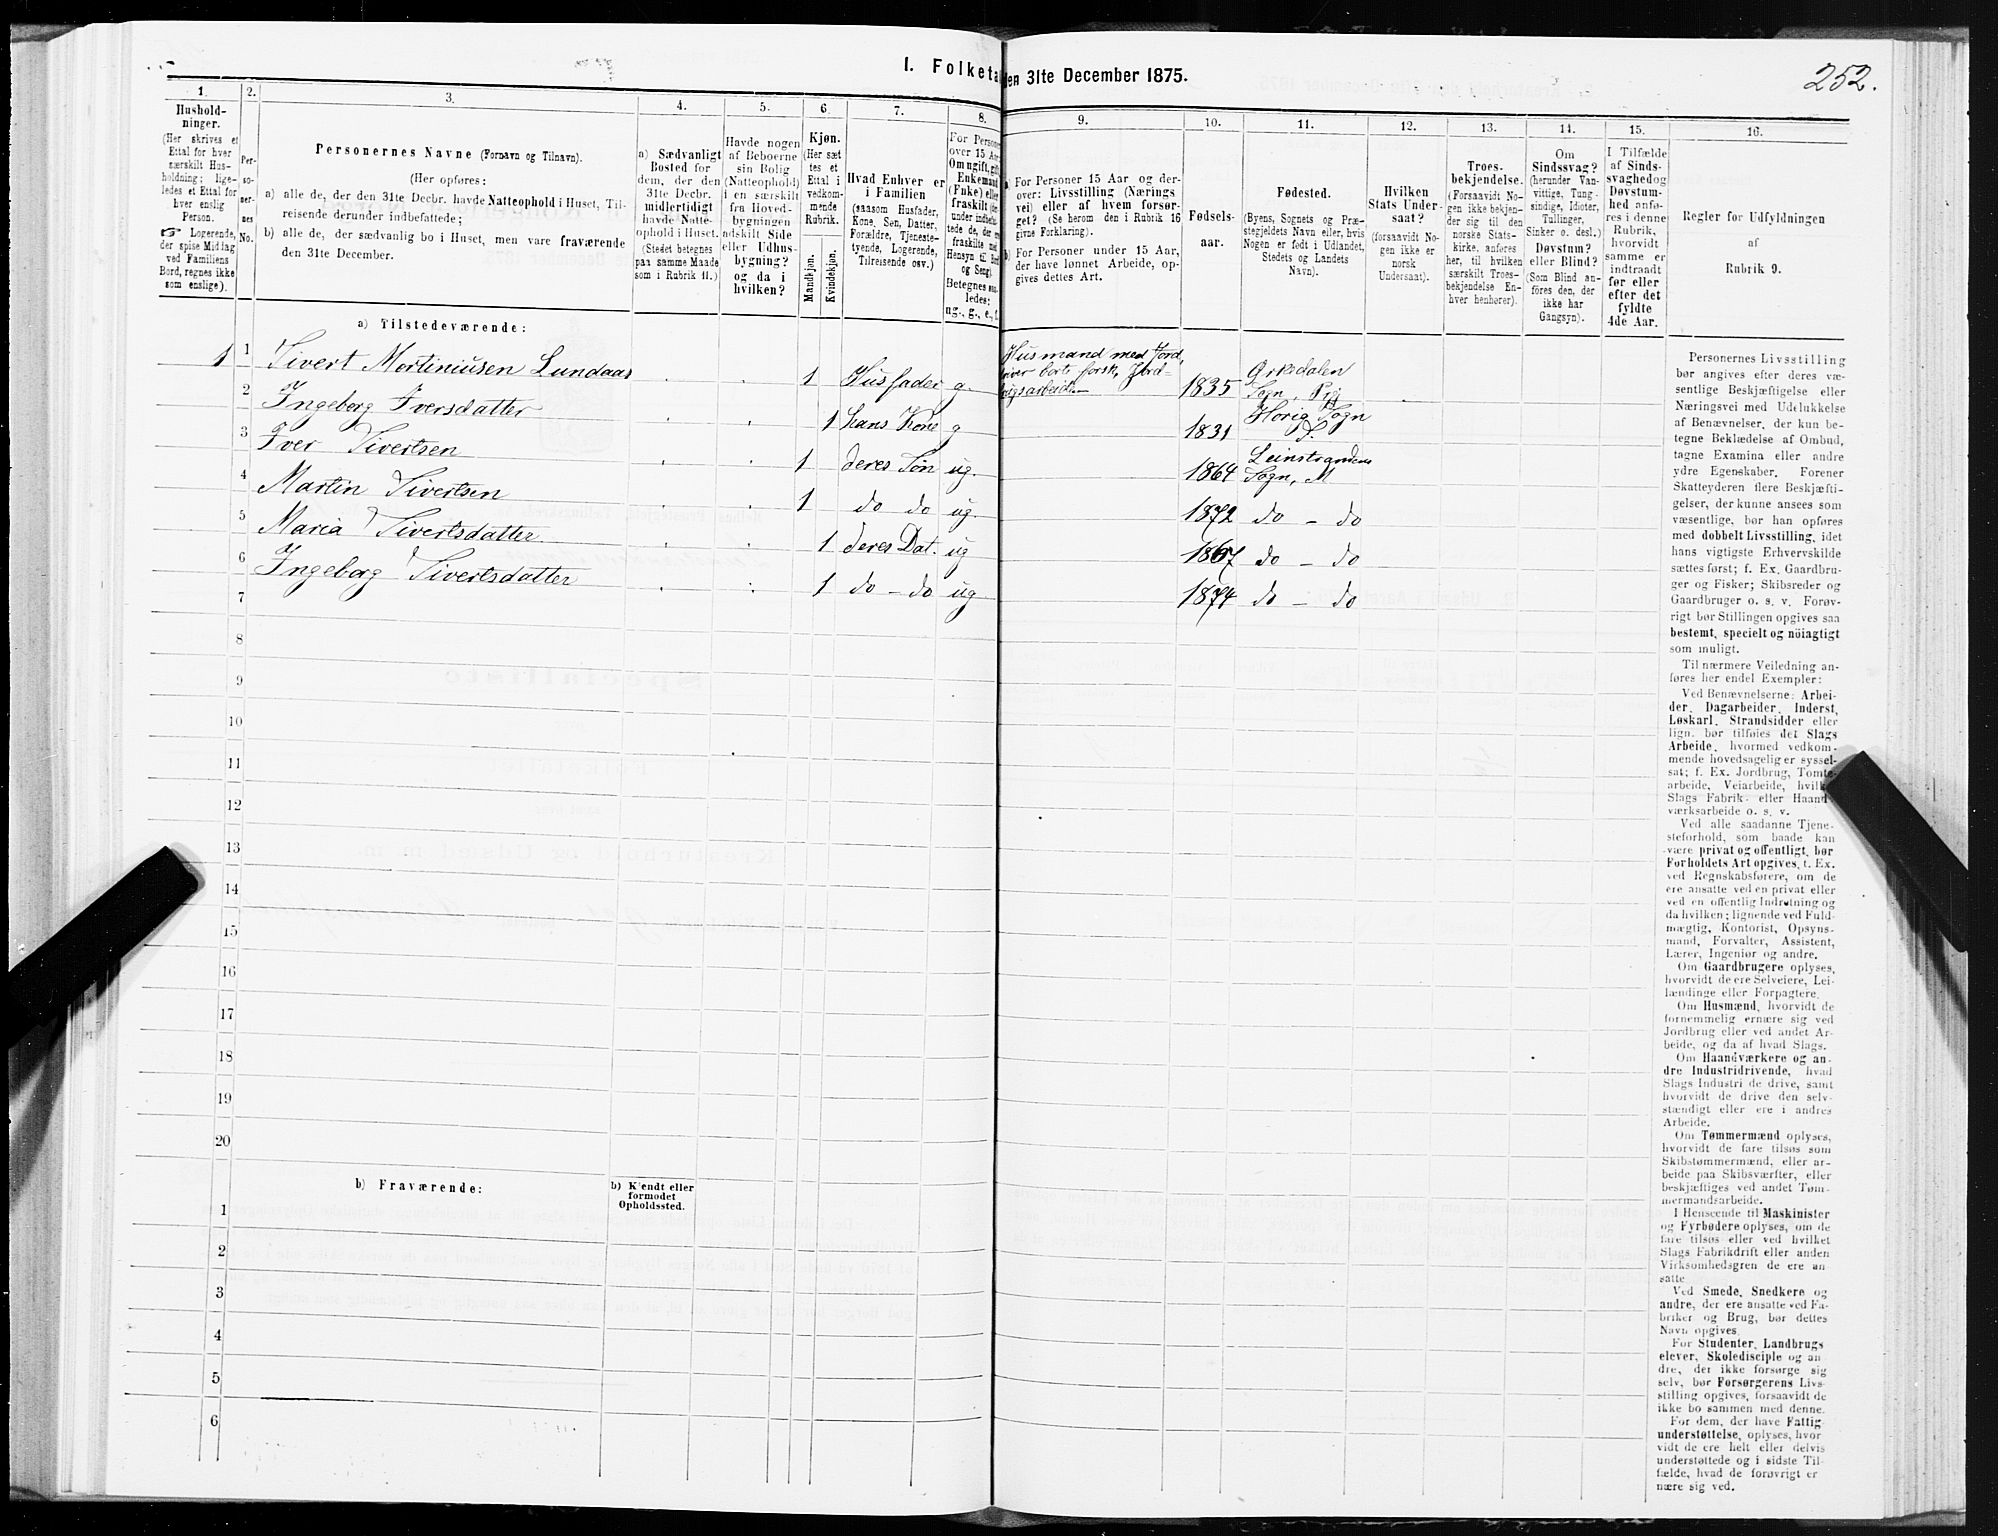 I. Folketa
den 31te December 1875.
252.
1.
Hushold-
ninger.
(Her skrives et
Ettal for hver
særskilt Hus-
holdning; lige-
ledes et Ettal for
hver enslig
Person.
☞ Logerende,
der spise Middag
ved Familiens
Bord, regnes ikke
som enslige).
2.
Per-
so-
ner-
nes
No.
3.
Personernes Navne (Fornavn og Tilnavn).
(Her opføres:
a) alle de, der den 31te Decbr. havde Natteophold i Huset, Til-
reisende derunder indbefattede;
b) alle de, der sædvanlig bo i Huset, men vare fraværende
den 31te December.
4.
a) Sædvanligt
Bosted for
dem, der den
31te Decbr.
midlertidigt
havde Natte-
ophold i Huset.
(Stedet betegnes
paa samme Maade
som i Rubrik 11.)
5.
Havde nogen
af Beboerne
sin Bolig
(Natteophold)
i en særskilt
fra Hoved-
bygningen
adskilt Side
eller Udhus-
bygning?
og da i
hvilken?
6.
Kjøn.
(Her sæt
tes et
Ettal i
vedkom-
mende
Rubrik.
Mandkjøn.
Kvindekjøn.
7.
Hvad Enhver er
i Familien
(saasom Husfader,
Kone, Søn, Datter,
Forældre, Tjeneste-
tyende, Logerende,
Tilreisende osv.)
8.
For Persone
over 15 Aar
Om ugift, gift
Enkemand
(Enke) eller
fraskilt
Betegnes saa-
ledes:
ug., g., e., f.
9.
a) For Personer 15 Aar og der-
over: Livsstilling (Nærings
vei) eller af hvem forsør-
get? (Se herom den i Rubrik 16
givne Forklaring).
b) For Personer under 15 Aar,
der have lønnet Arbeide, op-
gives dettes Art.
10.
Fødsels-
aar.
11.
Fødested.
(Byens, Sognets og Præ-
stegjeldets Navn eller, hvis
Nogen er født i Udlandet,
Stedets og Landets
Navn).
12.
Hvilken
Stats Under-
saat?
(forsaavidt No-
gen ikke er
norsk
Undersaat).
13.
Troes-
bekjendelse.
(Forsaavidt No-
gen ikke bekjen-
der sig til den
norske Stats-
kirke, anføres
her, til hvilken
særskilt Troes-
bekjendelse En-
hver henhører).
14.
Om
Sindssvag?
(herunder Van-
vittige, Tung-
sindige, Idioter,
Tullinger,
Sinker o. desl.)
Døvstum?
eller Blind?
(Som Blind an-
føres den, der
ikke har
Gangsyn).
15.
I Tilfælde
af Sinds-
svaghed og
Døvstum-
hed anfø-
res i denne
Rubrik,
hvorvidt
samme er
indtraadt
før eller
efter det
fyldte
4de Aar.
16.
Regler for Udfyldningen
af
Rubrik 9.
a) Tilstedeværende:
1 1 Sivert Mortiniusen Lundaas 1 Husfader g. Husmand med Jord, driver borte forsk. Jord- brugsarbeide 1835 Orkedalen Sogn, Prg
2 Ingeborg Iversdatter 1 hans Kone g 1831 Horig Sogn
3 Iver Sivertsen 1 deres Søn ug. 1864 Leinstrandens Sogn, M
4 Martin Sivertsen 1 do do ug. 1872 do – do
5 Maria Sivertsdatter 1 deres Dat. ug 1867 do – do
6 Ingeborg Sivertsdatter 1 do – do ug 1874 do – do
7
8
9
10
11
12
13
14
15
16
17
18
19
20
b) Fraværende:
b) Kjendt eller
formodet
Opholdssted.
1
2
3
4
5
6
Personernes Livsstilling
bør angives efter deres væ-
sentlige Beskjæftigelse eller
Næringsvei med Udelukkelse
af Benævnelser, der kun be-
tegne Beklædelse af Ombud,
tagne Examina eller andre
ydre Egenskaber. Forener
Skatteyderen flere Beskjæfti-
gelser, der kunne ansees som
væsentlige, bør han opføres
med dobbelt Livsstilling, idet
hans vigtigste Erhvervskilde
sættes først; f. Ex. Gaardbru-
ger og Fisker; Skibsreder og
Gaardbruger o. s. v. Forøv-
rigt bør Stillingen opgives saa
bestemt, specielt og nöiagtigt
som muligt.
Til nærmere Veiledning an-
føres her endel Exempler:
Ved Benævnelserne: Arbei-
der, Dagarbeider, Inderst,
Løskarl, Strandsidder eller
lign. bør tilføies det Slags
Arbeide, hvormed vedkom-
mende hovedsagelig er syssel-
sat; f. Ex. Jordbrug, Tomte-
arbeide, Veiarbeide, hvilk
Slags Fabrik- eller Haand-
værksarbeide o. s. v.
Ved alle saadanne Tjene-
steforhold, som baade kan
være privat og offentligt, bør
Forholdets Art opgives, f. Ex.
ved Regnskabsførere, om de
ere ansatte ved en privat eller
ved en offentlig Indretning og
da hvilken; lignende ved Fuld-
mægtig, Kontorist, Opsyns-
mand, Forvalter, Assistent,
Lærer, Ingeniør og andre.
Om Gaardbrugere oplyses,
hvorvidt de ere Selveiere, Lei-
lændinge eller Forpagtere.
Om Husmænd, hvorvidt de
fornemmelig ernære sig ved
Jordbrug eller ved andet Ar-
beide, og da af hvad Slags.
Om Haandværkere og an-
dre Industridrivende, hvad
Slags Industri de drive, samt
hvorvidt de drive den selv-
stændigt eller ere i andres
Arbeide.
Om Tømmermænd oplyses,
hvorvidt de fare tilsøs som
Skibstømmermænd, eller ar-
beide paa Skibsværfter, eller
beskjæftiges ved andet Tøm-
mermandsarbeide.
I Henseende til Maskinister
og Fyrbødere oplyses, om de
fare tilsøs eller ved hvilket
Slags Fabrikdrift eller anden
Virksomhedsgren de ere an
satte
Ved Smede, Snedkere og
andre, der ere ansatte ved Fa-
briker og Brug, bør dettes
Navn opgives.
For Studenter, Landbrugs
elever, Skoledisciple og an
dre, der ikke forsørge sig
selv, bør Forsørgerens Livs-
stilling opgives, forsaavidt de
ikke bo sammen med denne.
For dem, der have Fattig
understøttelse, oplyses, hvor
vidt de ere helt eller delvis
understøttede og i sidste Til-
fælde, hvad de forøvrigt er
nære sig ved.